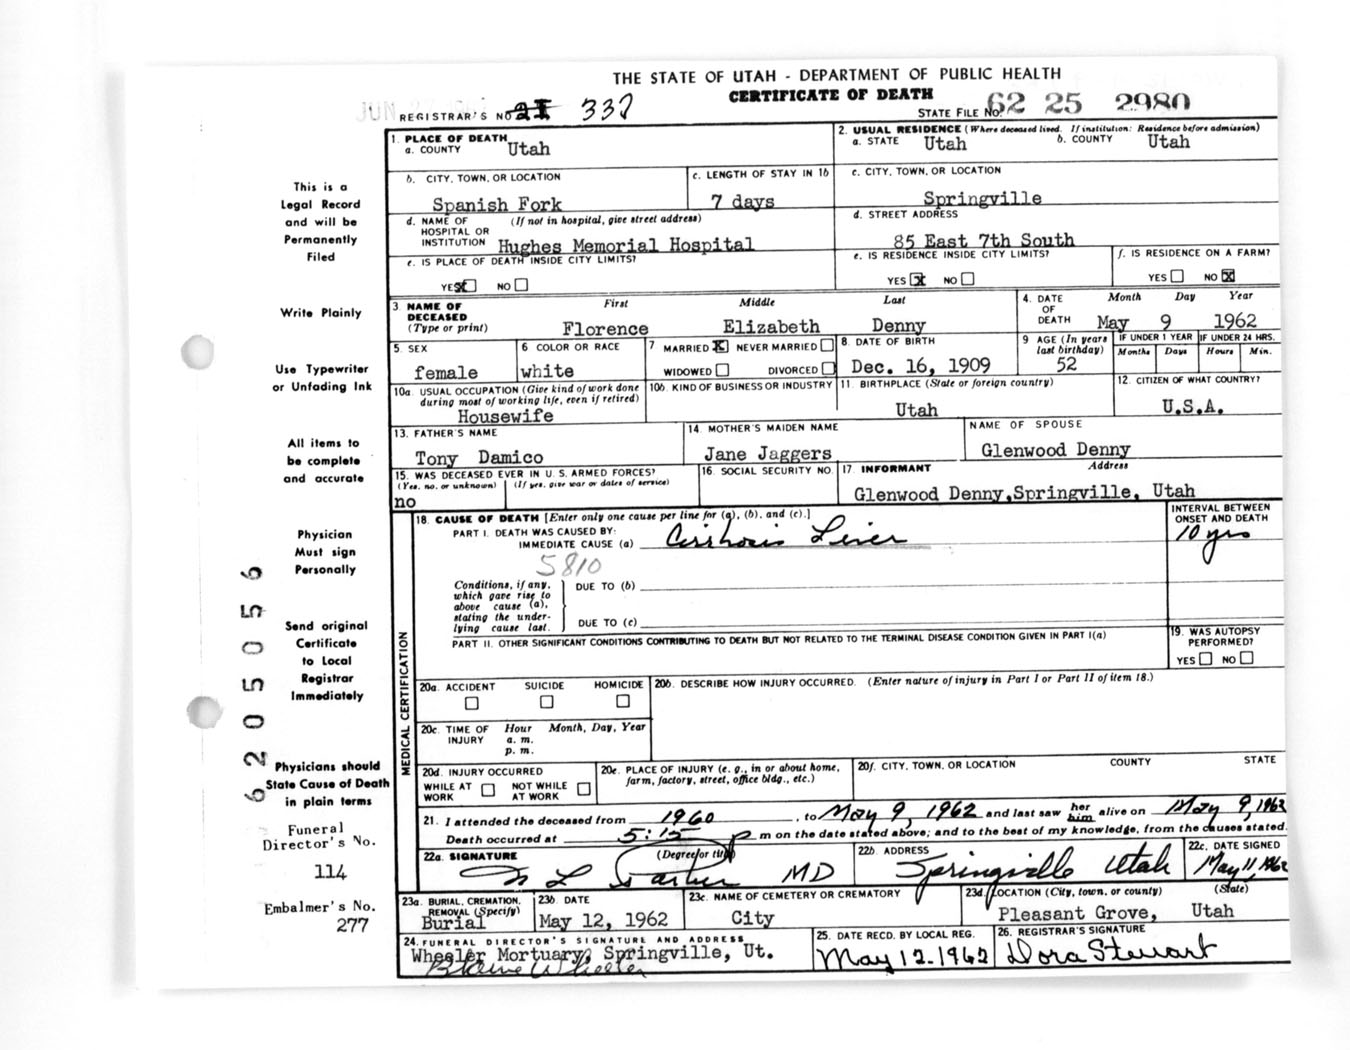 THE STATE OF UTAH - DEPARTMENT OF PUBLIC HEALTH
CERTIFICATE OF DEATH
REGISTRAR'S NO. 337
STATE FILE NO. 62 25 2980
This is a
Legal Record
and will be
Permanently
Filed
Write Plainly
Use Typewriter
or Unfading Ink
All items to
be complete
and accurate
Physician
Must sign
Personally
Send original
Certificate
to Local
Registrar
Immediately
Physicians should
State Cause of Death
in plain terms
Funeral
Director's No.
114
Embalmer's No.
277
62050056
1. PLACE OF DEATH
a. COUNTY Utah
2. USUAL RESIDENCE (Where deceased lived. If institution: Residence before admission)
a. STATE Utah b. COUNTY Utah
b. CITY, TOWN, OR LOCATION
Spanish Fork
c. LENGTH OF STAY IN 1b
7 days
c. CITY, TOWN, OR LOCATION
Springville
d. NAME OF (If not in hospital, give street address)
HOSPITAL OR
INSTITUTION Hughes Memorial Hospital
d. STREET ADDRESS
85 East 7th South
e. IS PLACE OF DEATH INSIDE CITY LIMITS?
YES x NO
e. IS RESIDENCE INSIDE CITY LIMITS?
YES x NO
f. IS RESIDENCE ON A FARM?
YES NO x
3. NAME OF DECEASED (Type or print)
First Middle Last
Florence Elizabeth Denny
4. DATE OF DEATH Month Day Year
May 9 1962
5. SEX
female
6 COLOR OR RACE
white
7 MARRIED X NEVER MARRIED
WIDOWED DIVORCED
8. DATE OF BIRTH
Dec. 16, 1909
9 AGE (In years last birthday)
52
IF UNDER 1 YEAR
Months Days
IF UNDER 24 HRS.
Hours Min.
10a. USUAL OCCUPATION (Give kind of work done during most of working life, even if retired)
Housewife
10b. KIND OF BUSINESS OR INDUSTRY
11. BIRTHPLACE (State or foreign country)
Utah
12. CITIZEN OF WHAT COUNTRY?
U.S.A.
13. FATHER'S NAME
Tony Damico
14. MOTHER'S MAIDEN NAME
Jane Jaggers
NAME OF SPOUSE
Glenwood Denny
15. WAS DECEASED EVER IN U. S. ARMED FORCES?
(Yes, no, or unknown) (If yes, give war or dates of service)
no
16. SOCIAL SECURITY NO.
17. INFORMANT Address
Glenwood Denny,Springville, Utah
MEDICAL CERTIFICATION
18. CAUSE OF DEATH [Enter only one cause per line for (a), (b), and (c).]
PART I. DEATH WAS CAUSED BY:
IMMEDIATE CAUSE (a) Cirrhosis Liver
5810
INTERVAL BETWEEN
ONSET AND DEATH
10 yrs
Conditions, if any,
which gave rise to
above cause (a),
stating the under-
lying cause last.
DUE TO (b)
DUE TO (c)
PART II. OTHER SIGNIFICANT CONDITIONS CONTRIBUTING TO DEATH BUT NOT RELATED TO THE TERMINAL DISEASE CONDITION GIVEN IN PART I(a)
19. WAS AUTOPSY
PERFORMED?
YES NO
20a. ACCIDENT SUICIDE HOMICIDE
20b. DESCRIBE HOW INJURY OCCURRED. (Enter nature of injury in Part I or Part II of item 18.)
20c. TIME OF INJURY Hour Month, Day, Year
a. m.
p. m.
20d. INJURY OCCURRED
WHILE AT WORK NOT WHILE AT WORK
20e. PLACE OF INJURY (e. g., in or about home, farm, factory, street, office bldg., etc.)
20f. CITY, TOWN, OR LOCATION COUNTY STATE
21. I attended the deceased from 1960, to May 9, 1962 and last saw her him alive on May 9, 1962
Death occurred at 5:15 p m on the date stated above; and to the best of my knowledge, from the causes stated.
22a. SIGNATURE (Degree or title)
MD
22b. ADDRESS
Springville Utah
22c. DATE SIGNED
May 11, 1962
23a. BURIAL, CREMATION, REMOVAL (Specify)
Burial
23b. DATE
May 12, 1962
23c. NAME OF CEMETERY OR CREMATORY
City
23d. LOCATION (City, town, or county) (State)
Pleasant Grove, Utah
24. FUNERAL DIRECTOR'S SIGNATURE AND ADDRESS
Wheeler Mortuary, Springville, Ut.
Blaine Wheeler
25. DATE RECD. BY LOCAL REG.
May 12-1962
26. REGISTRAR'S SIGNATURE
Dora Stewart